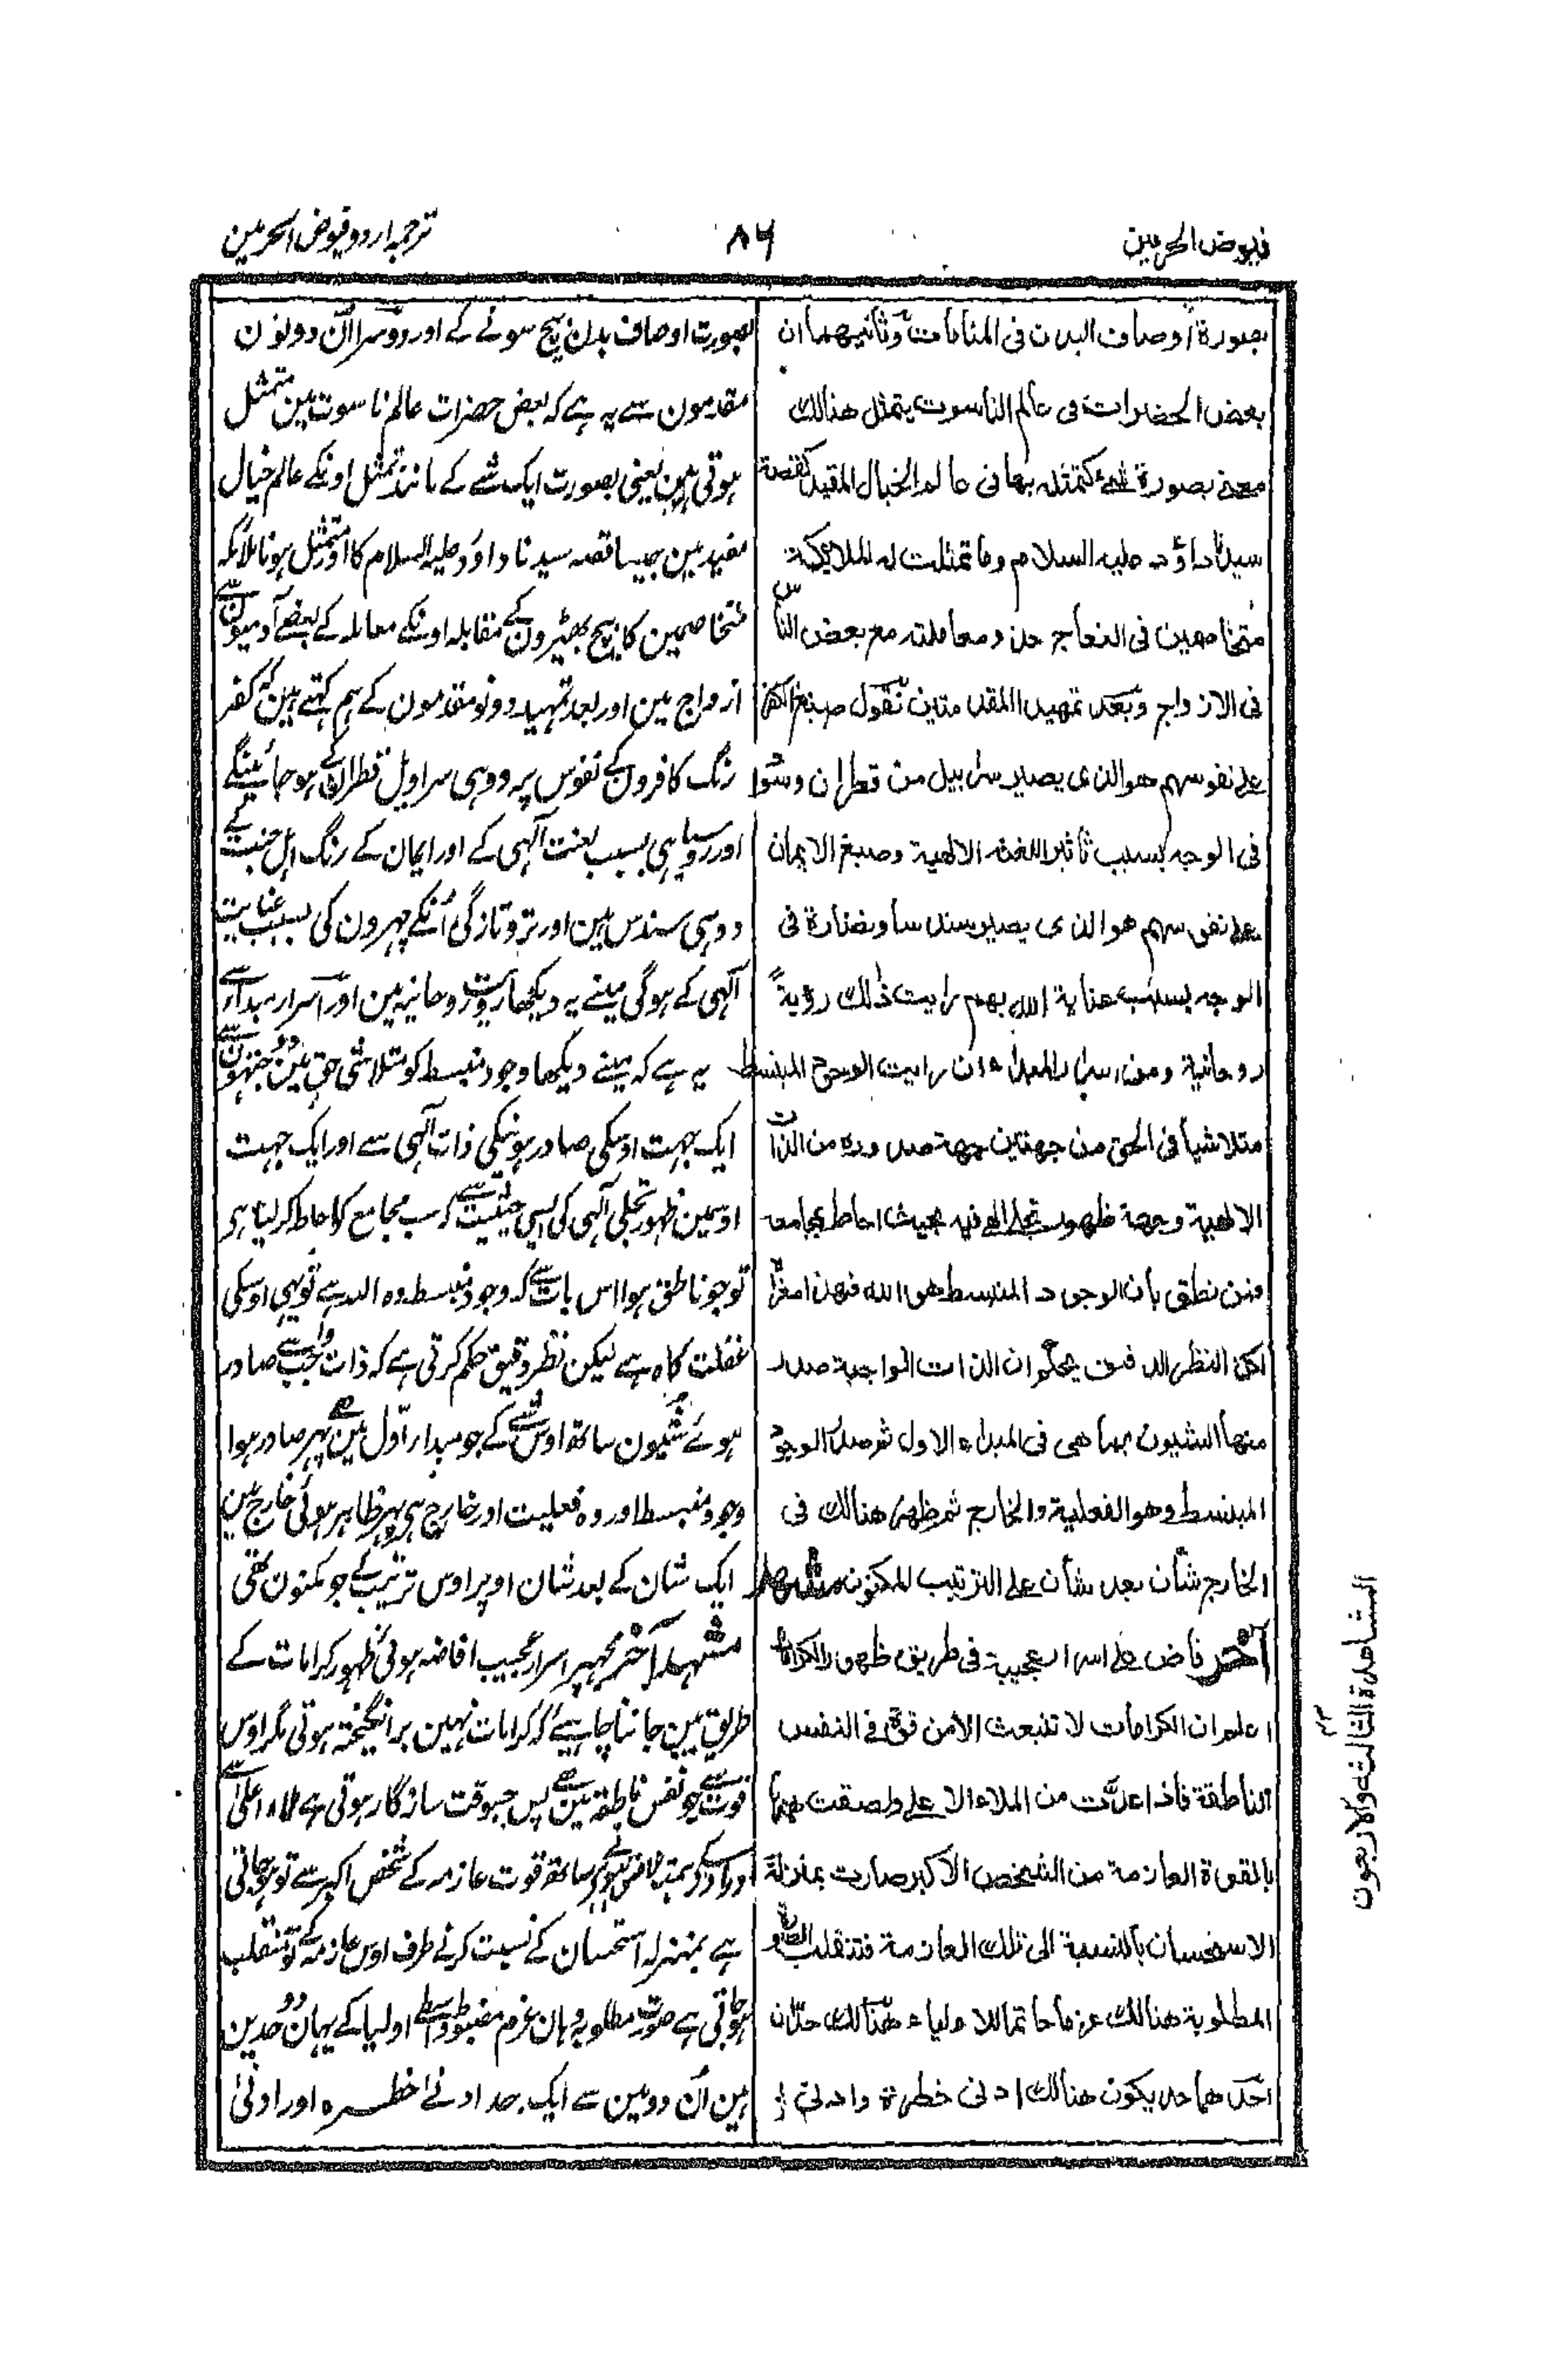 فيوض الحرمين
۸۶
ترجمہ اردو فیوض الحرمین
بصورة اوصاف البدن فى المنامات وثانيهما ان
بعض الحضرات فى عالم الناسوت يتمثل هنالك
معنے بصورة شئ كتمثله بها فى عالم الخيال المقيد كقصة
سيدنا داؤد عليه السلام وما تمثلت له الملائكة
متخاصمين فى النعاج حذو معاملته مع بعض الناس
فى الازواج وبعد تمهيد المقدمتين نقول صبغ الكفر
على نفوسهم هو الذى يصير سرابيل من قطران وسوا
فى الوجه بسبب تاثير اللعنة الالهية وصبغ الايمان
على نفوسهم هو الذى يصير سندسا ونضارة فى
الوجه بسبب عناية الله بهم رايت ذلك رؤية
روحانية ومن اسرار المبداء ان رايت الوجود المنبسط
متلاشيا فى الحق من جهتين جهة صدوره من الذات
الالهية وجهة ظهور تجلى الهى فيه بحيث احاط بمجامعه
فمن نطق بان الوجود المنبسط هو الله فهذا مغزا
لكن النظر الدقيق يحكم ان الذات الواجبة صدر
منها الشيون بما هى فى المبداء الاول ثم صدر الوجود
المنبسط وهو الفعلية والخارج ثم ظهر هنالك فى
الخارج شأن بعد شأن على الترتيب المكنون مشهد
آخر فاض على اسرار عجيبة فى طريق ظهور الكرامات
اعلم ان الكرامات لا تنبعث الا من قوة فى النفس
الناطقة فاذا اعدّت من الملاء الاعلى ولصقت همتها
بالقوة العازمة من الشخص الاكبر صارت بمنزلة
الاستحسان بالنسبة الى تلك العازمة فتنقلب الصورة
المطلوبة هنالك عزما حاتما للاولياء هنالك حدّان
احدهما حد يكون هنالك ادنى خطرة وادنى
بصورت اوصاف بدن بیچ سونے کے اور دوسرا اُن دونون
مقدمون سے یہ ہے کہ بعض حضرات عالم ناسوت مین متمثل
ہوتی ہین یعنی بصورت ایک شے کے مانند تمثل اونکے عالم خیال
مقید مین جیسا قصہ سیدنا داؤد علیہ السلام کا اور متمثل ہونا ملائکہ
متخاصمین کا بیچ بھیڑون کے مقابلہ اونکے معاملہ کے بعضے آدمیون سے
ازواج مین اور بعد تمہید دونو مقدمون کے ہم کہتے ہین کہ کفر
رنگ کافرون کے نفوس پر وہی سراویل قطران کے ہو جائینگے
اور روسیاہی بسبب لعنت آلہی کے اور ایمان کے رنگ اہل جنت کے
وہی سندس ہین اور تر و تازگی اُنکے چہرون کی بسبب عنایت
آلہی کے ہوگی مینے یہ دیکھا رویت روحانیہ مین اور اسرار مبدار سے
یہ ہے کہ مینے دیکھا وجود منبسط کو متلاشی حق مین دو جہتون سے
ایک جہت اوسکی صادر ہونیکی ذات آلہی سے اور ایک جہت
اوسمین ظہور تجلی آلہی کی ایسی حیثیت سے کہ سب مجامع کو احاطہ کر لیا ہی
تو جو ناطق ہوا اس بات سے کہ وجود منبسط وہ اللہ ہے تو یہی اوسکی
غفلت گاہ ہے لیکن نظر دقیق حکم کرتی ہے کہ ذات واجب سے صادر
ہوئے شیون ساتھ اوس شے کے جو مبدار اوّل مین ہے پھر صادر ہوا
وجود منبسط اور وہ فعلیت اور خارج ہی پھر ظاہر ہوئی خارج مین
ایک شان کے بعد شان اوپر اوس ترتیب کے جو مکنون تھی
مشہد آخر مجھپر اسرار عجیب افاضہ ہوئی ظہور کرامات کے
طریق مین جاننا چاہیے کہ کرامات نہین برانگیختہ ہوتی مگر اوس
قوت سے جو نفس ناطقہ مین ہے پس جسوقت سازگار ہوتی ہے ملاء اعلی سے
اور اوسکی ہمت لاصق ہو کر ساتھ قوت عازمہ کے شخص اکبر سے تو ہو جاتی
ہے بمنزلہ استحسان کے نسبت کرنے طرف اوس عازمہ کے تو منقلب
ہو جاتی ہے صورت مطلوبہ وہان عزم مضبوط واسطے اولیا کے یہان دو حدین
ہین اُن دو مین سے ایک حد ادنے خطرہ اور ادنیٰ
المشاهدة الثالثة والاربعون